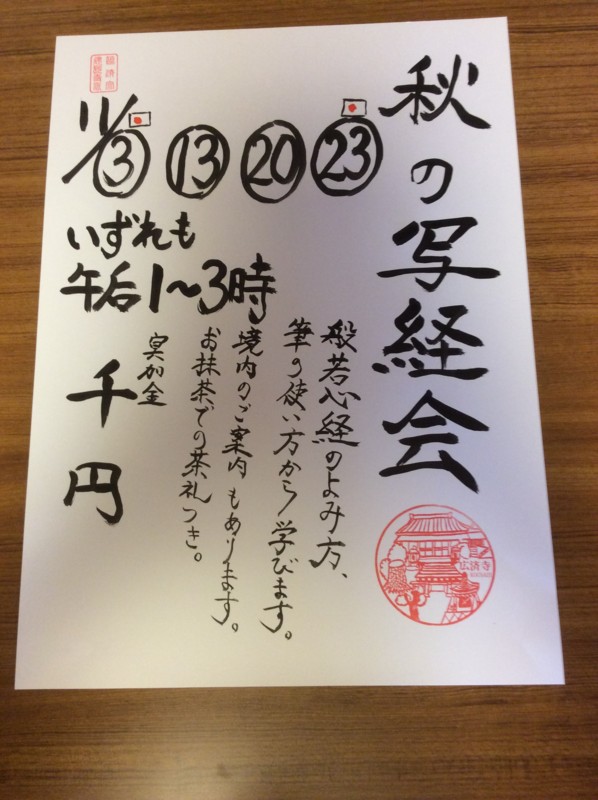 秋の写経会
11/3 13 20 23
いずれも
午后1〜3時
般若心経のよみ方、
筆の使い方から学びます。
境内のご案内もあります。
お抹茶での茶礼つき。
冥加金
千円
広済寺